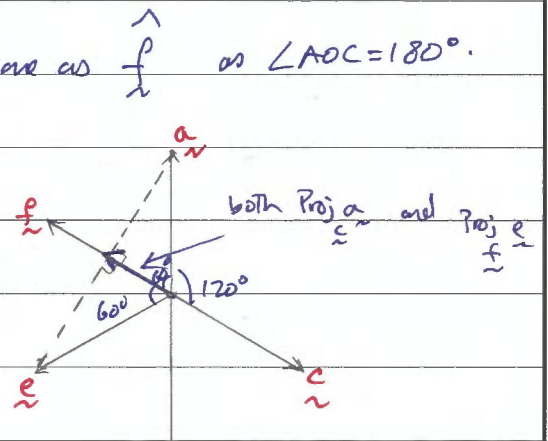 are as f̂ as ∠AOC=180°.
a
f
both Proj a and Proj e
c f
60° 60° 120°
e
c